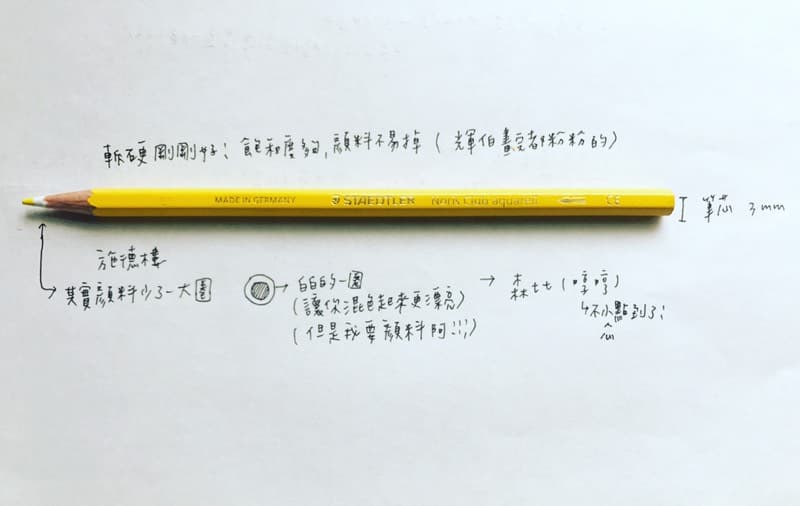 軟硬剛剛好！飽和度夠，顏料不易掉（輝伯畫完都粉粉的）
MADE IN GERMANY STAEDTLER Noris Club aquarell CE
筆芯 3mm
施德樓
其實顏料少了一大圈
白白的一圈
（讓你混色起來更漂亮）
（但是我要顏料阿!!!）
森七七（哼哼）
不小心點到了！